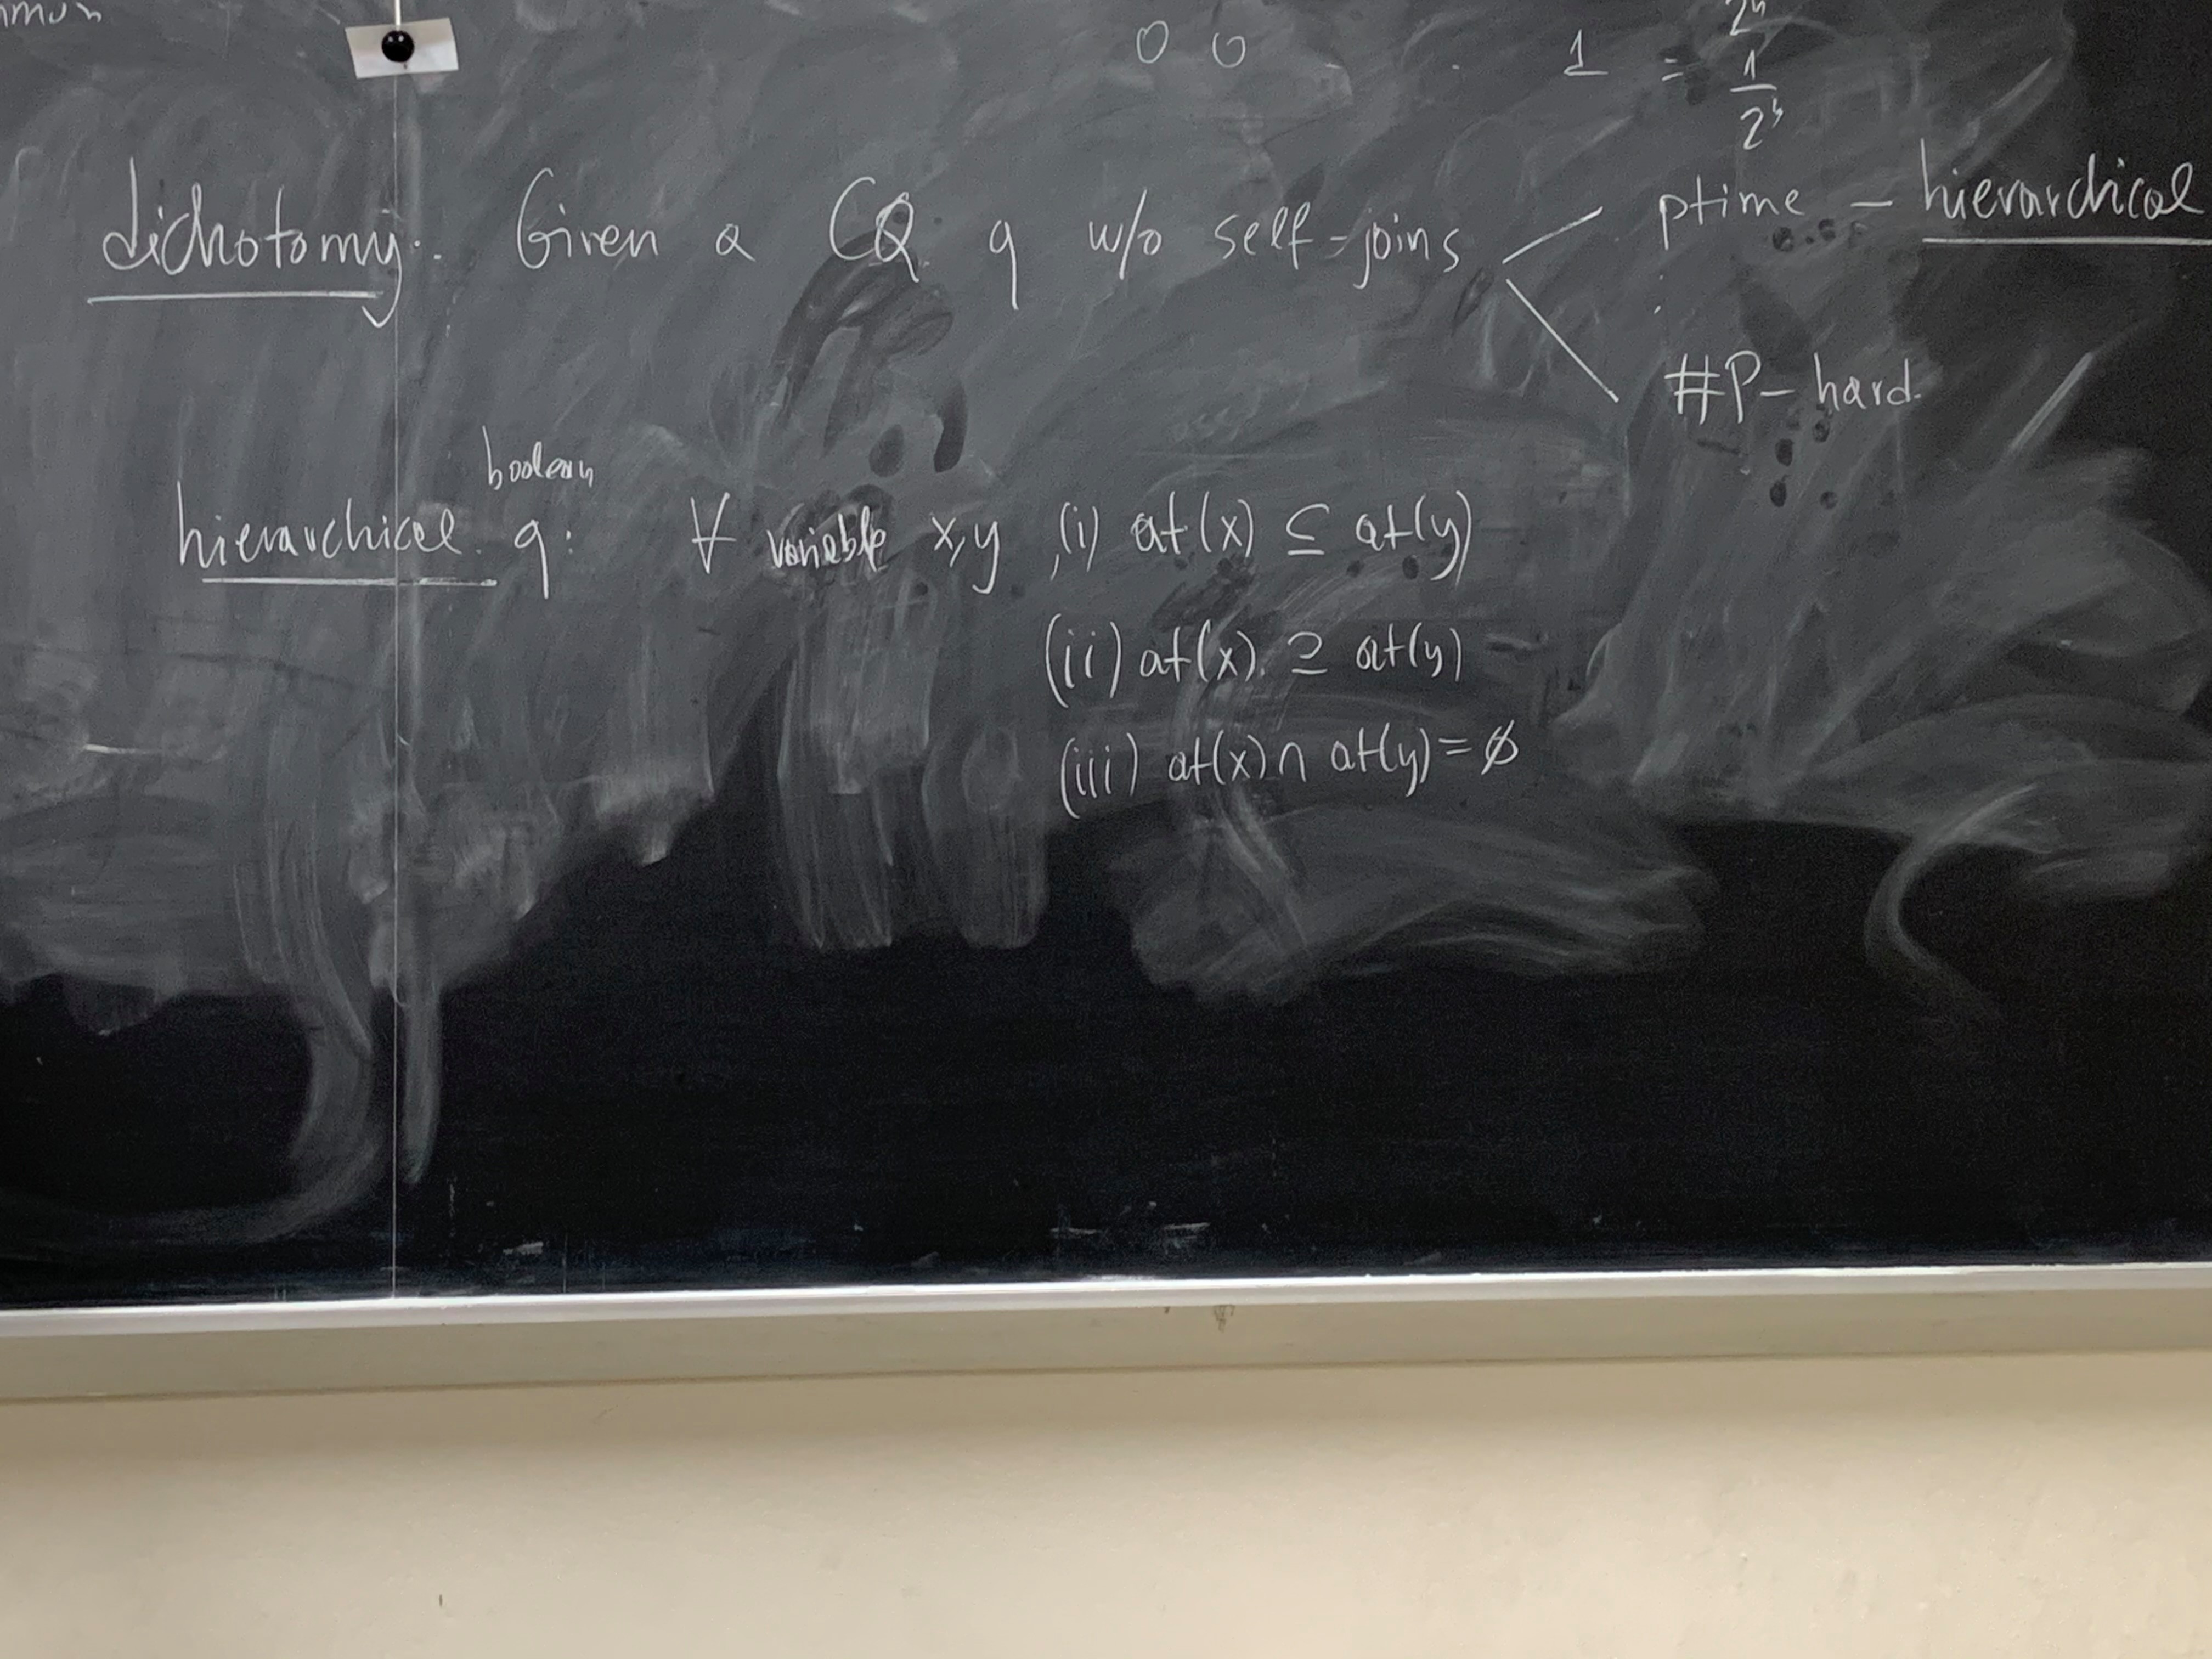 0 0 . 1 = 1/2ⁿ
dichotomy. Given a CQ q w/o self-joins
ptime – hierarchical
#P-hard.
boolean
hierarchical q: ∀ variable x,y, (i) at(x) ⊆ at(y)
(ii) at(x) ⊇ at(y)
(iii) at(x) ∩ at(y) = ∅